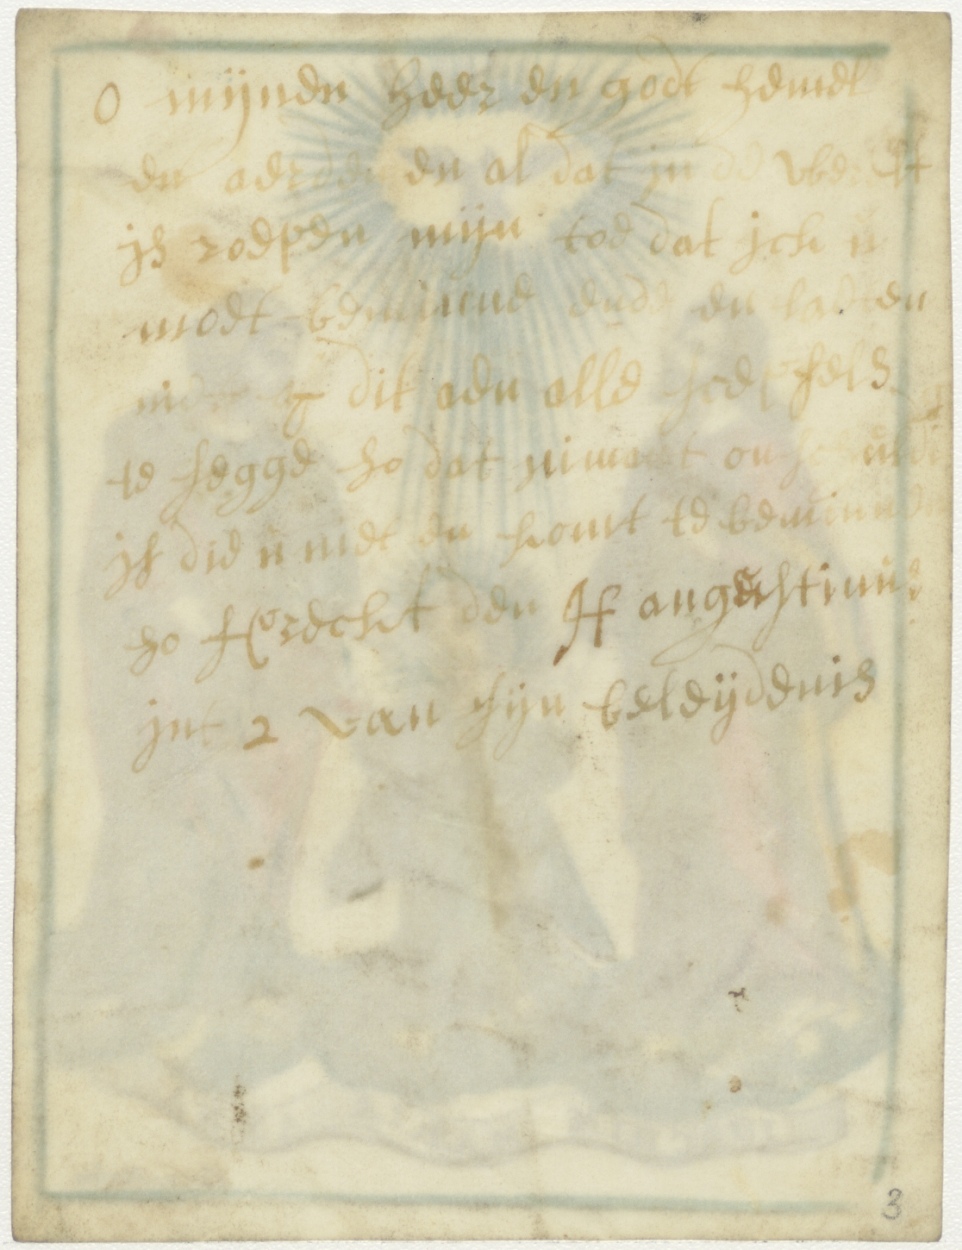 O mijnen heer en godt hemel
en aerde en al dat in de
is roepen mijn toe dat ick u
moet beminne ende en laeten
niet dit aen alle
te segge so dat niemant
is die u niet en komt te beminnen
so spreckt den H augustinus
int 2 van sijn beleijdenis
3